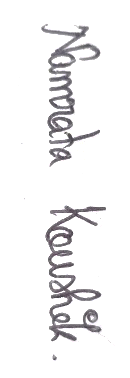 Namrata Kaushik.